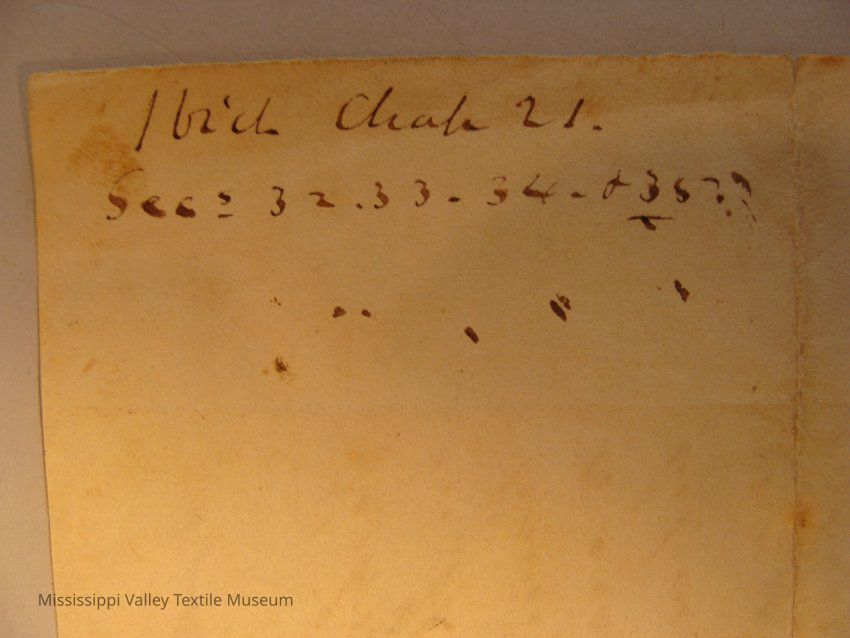 Ibid Chap 21.
Secs 32.33-34-&35?
Mississippi Valley Textile Museum